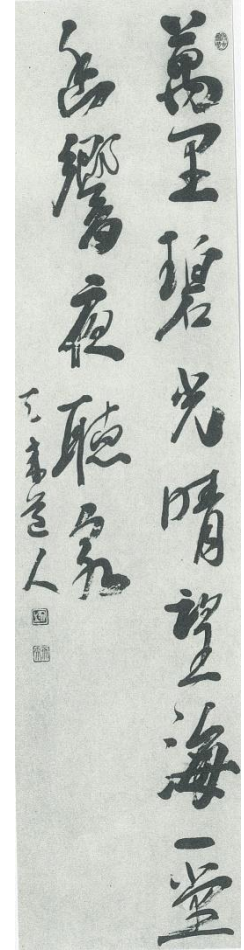 萬里碧光晴望海一堂
幽響夜聽泉
道人